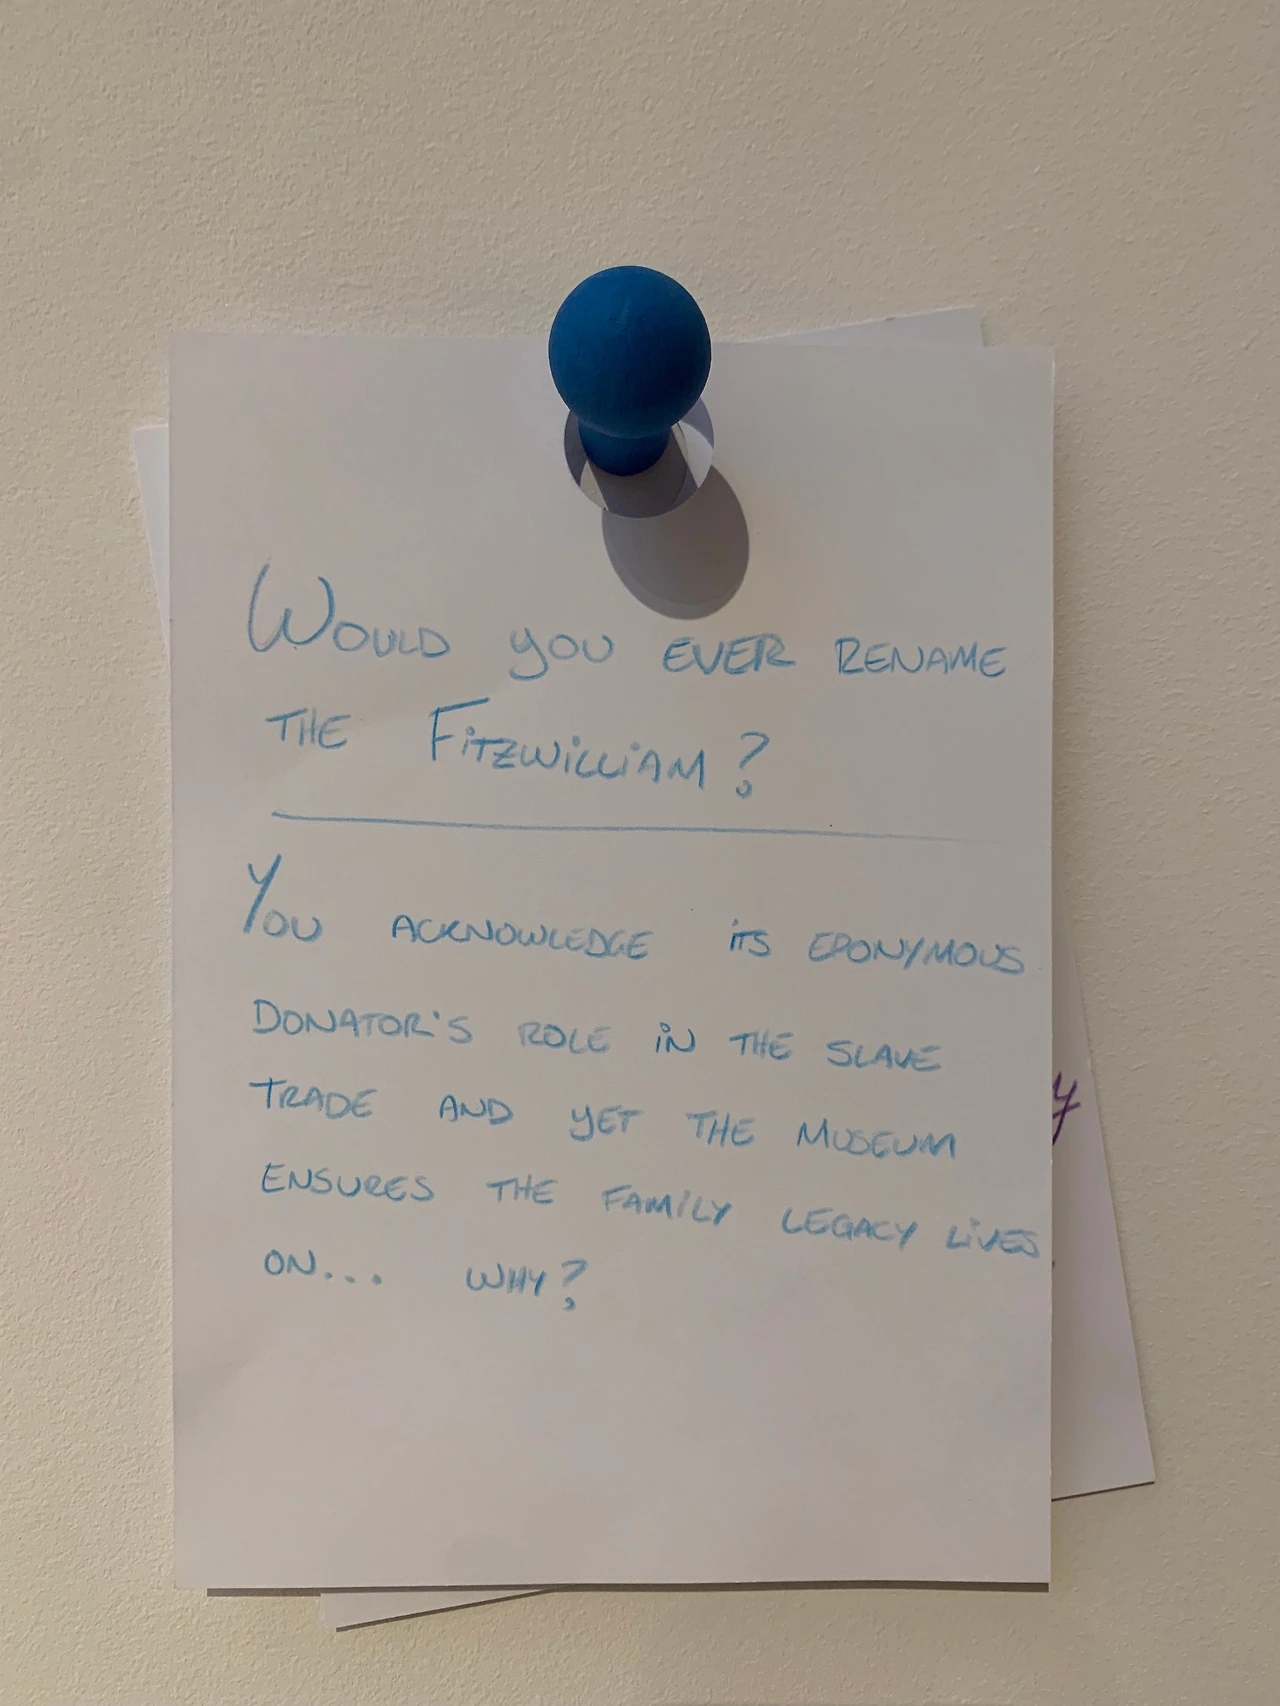 WOULD YOU EVER RENAME
THE FITZWILLIAM?
YOU ACKNOWLEDGE ITS EPONYMOUS
DONATOR'S ROLE IN THE SLAVE
TRADE AND YET THE MUSEUM
ENSURES THE FAMILY LEGACY LIVES
ON... WHY?
y